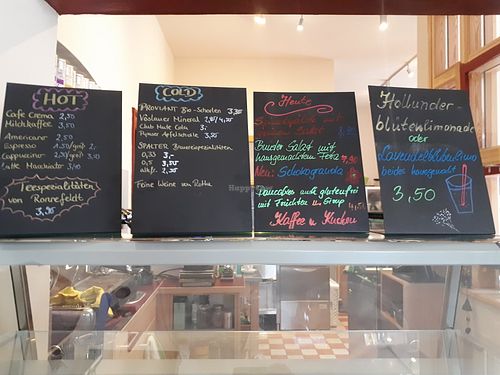 HOT
Cafe Crema 2,30
Milchkaffee 3,50
Americano 2,50
Espresso 1,50/gr. 2,-
Cappuccino 2,30/groß 3,-
Latte Macchiato 3,40
Teespezialitäten
von Ronnefeldt
3,95
COLD
PROVIANT Bio-Schorlen 3,30
Vöslauer Mineral
Club Mate Cola 3,-
Flyner Apfelschorle 3,20
SPALTER Brauereispezialitäten
0,33 3,-
0,5 3,50
0,5 3,50
Feine Weine von Rothe
Heute
mit
Salat
Bunter Salat mit
hausgemachtem Feta 7,90
Neu: Schokogranola
Pancakes auch glutenfrei
mit Früchten u. Sirup
4,50
Kaffee u. Kuchen
Hollunder-
blütenlimonade
oder
Lavendelblütenlimo
beides hausgemacht
3,50